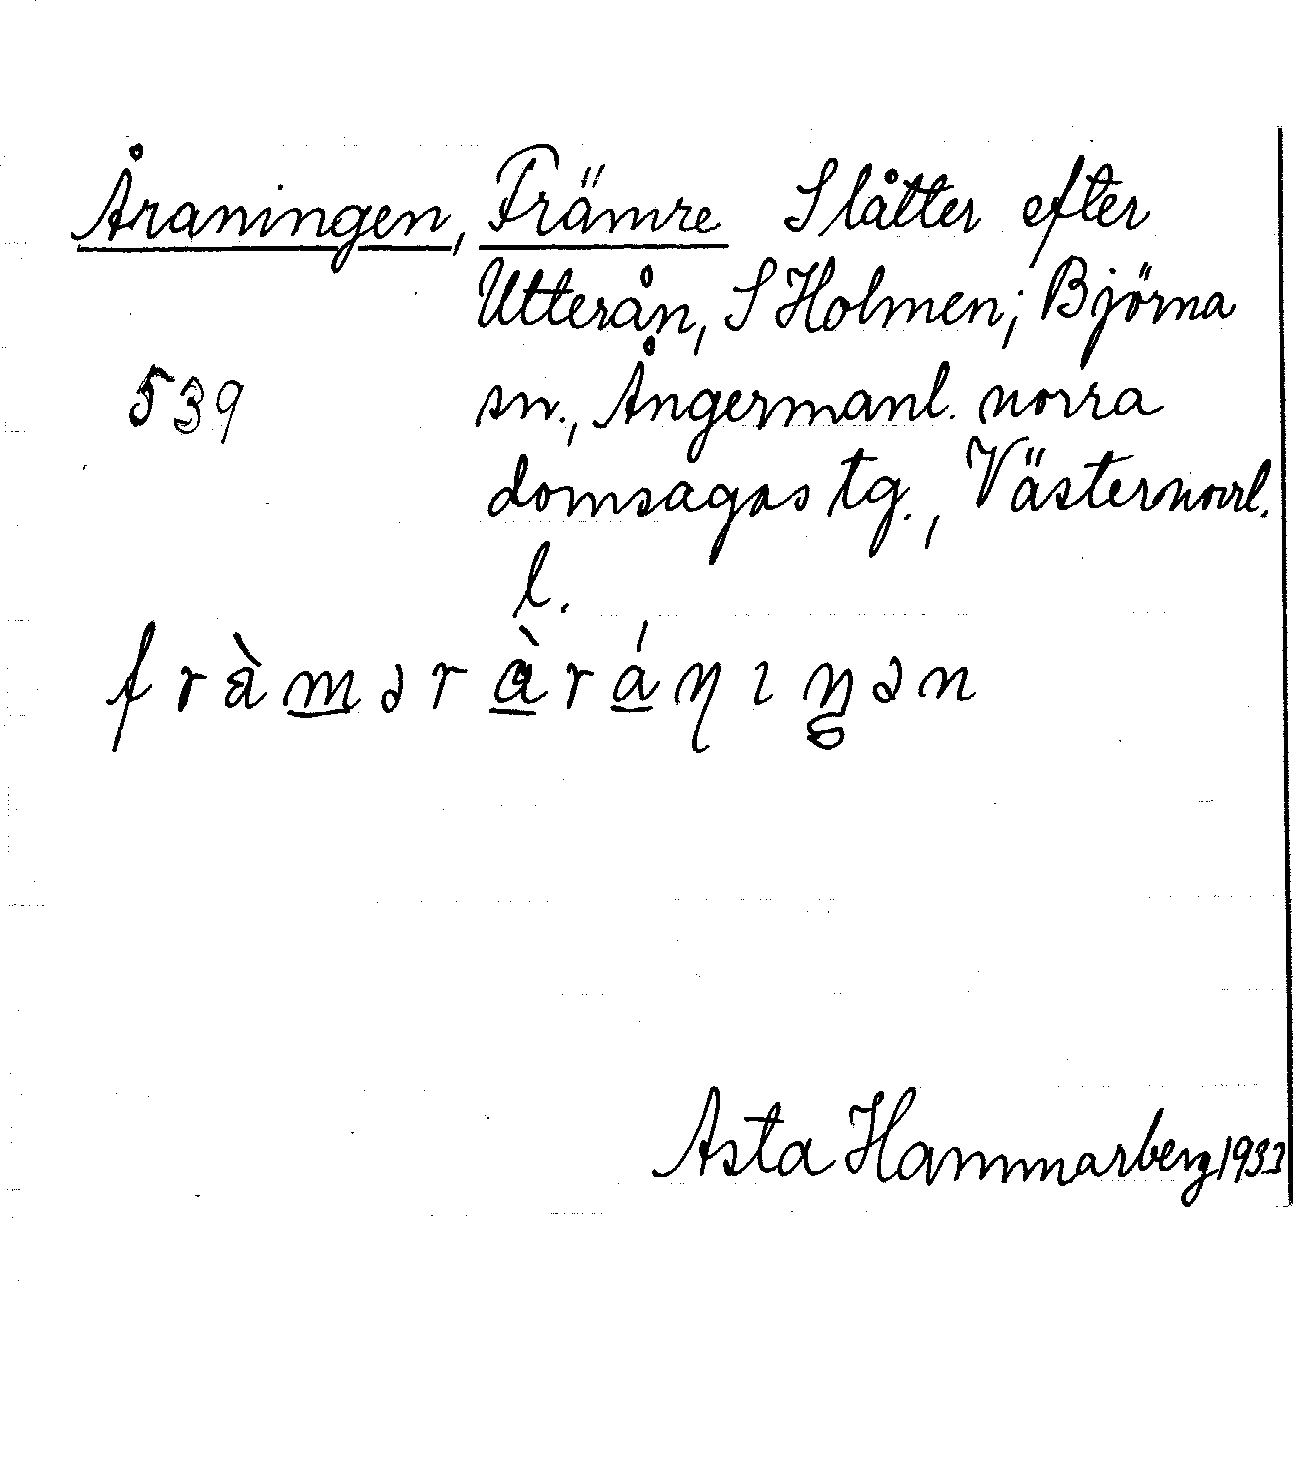 Åraningen, Främre Slåtter efter
Utterån, S Holmen; Björna
539 sn., Ångermanl. norra
domsagas tg., Västernorrl.
l.
fràməràráŋɪŋən
Asta Hammarberg 1933